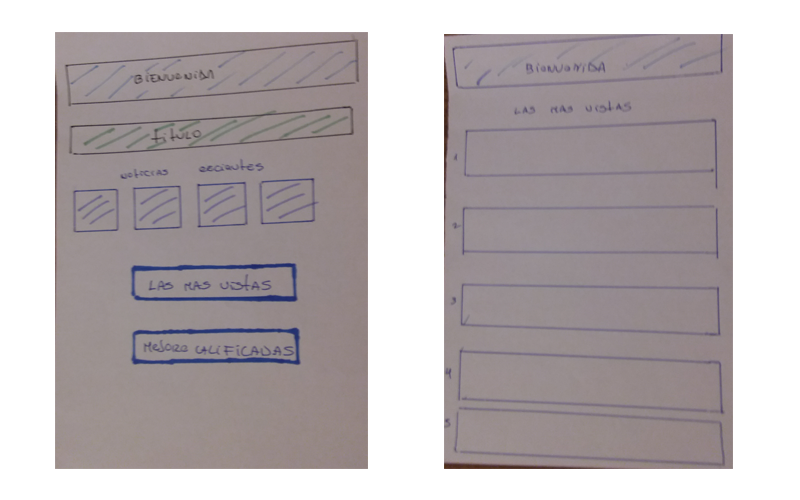 BIENVENIDA
titulo
NOTICIAS RECIENTES
LAS MAS VISTAS
MEJORO CALIFICADAS
BIENVENIDA
LAS MAS VISTAS
1
2
3
4
5